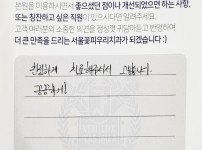 본원을 이용하시면서 좋으셨던 점이나 개선되었으면 하는 사항,
또는 칭찬하고 싶은 직원이 있으시다면 알려주세요.
고객 여러분의 소중한 의견을 정성껏 귀담아듣고 반영하여
더 큰 만족을 드리는 서울꽃피우리치과가 되겠습니다 :)
친절하게 치료해주셔서 감사합니다.
꼼꼼하게!